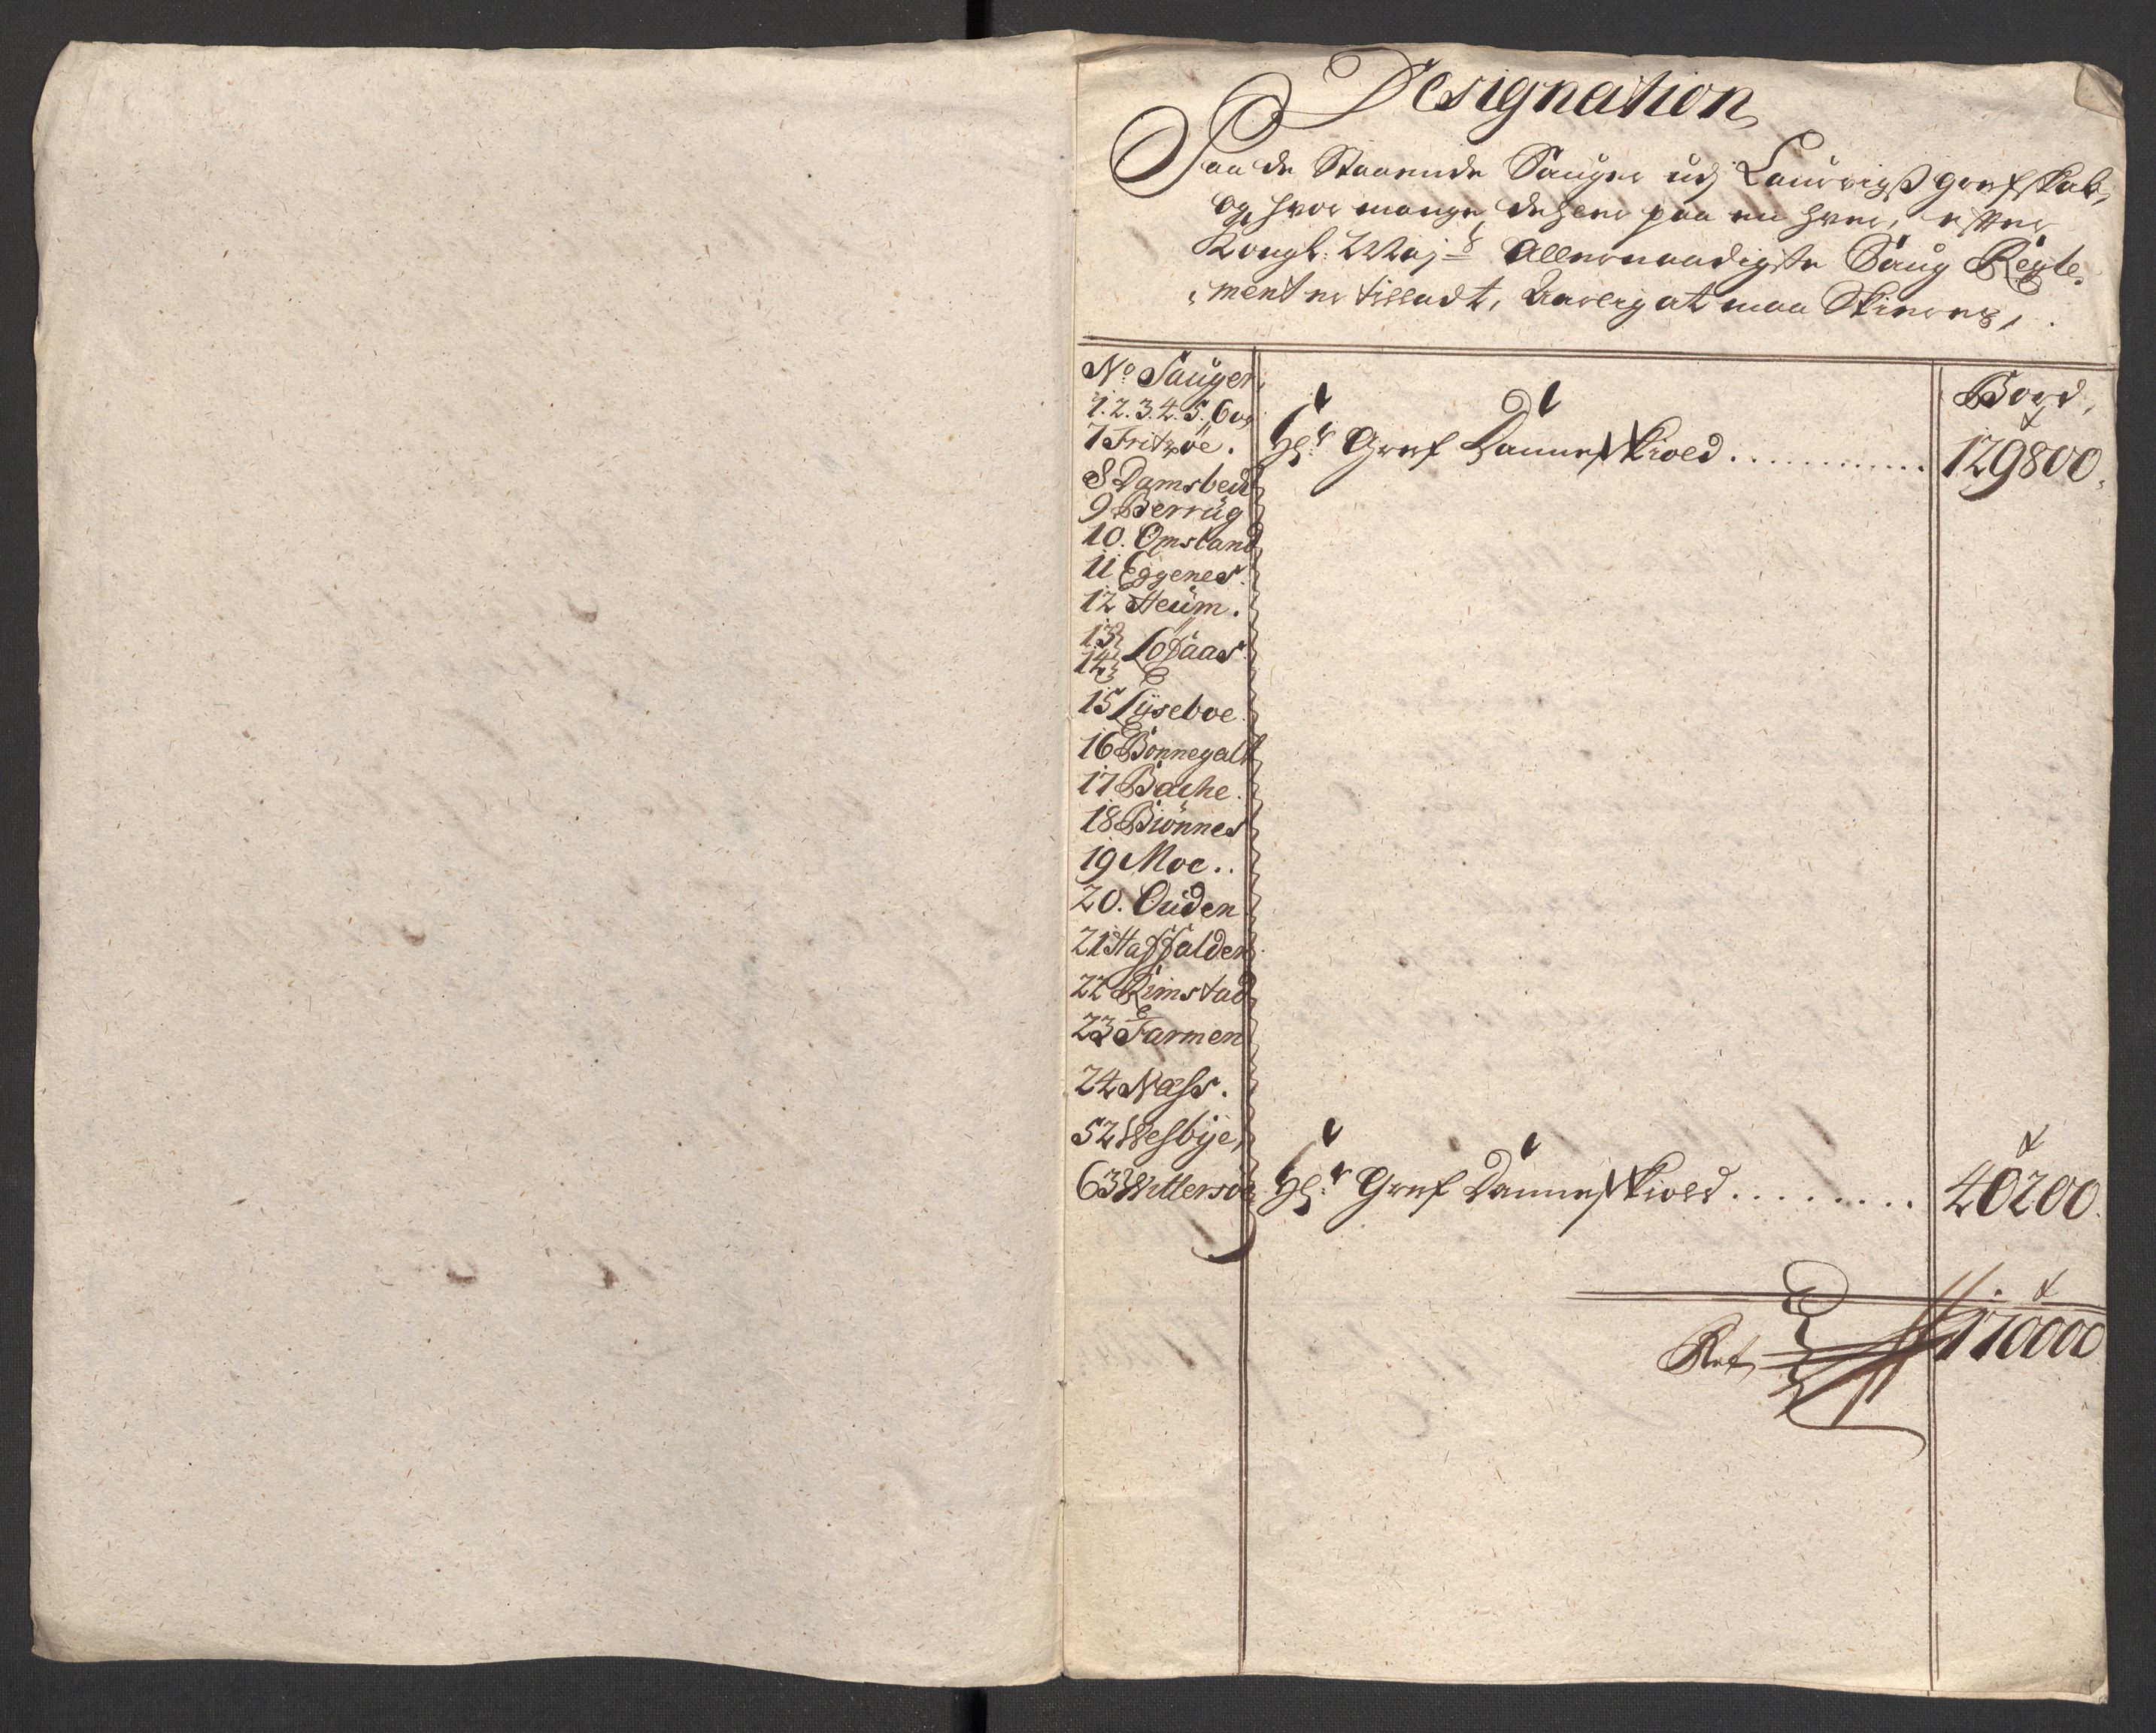 Designation
Paa de Staaende Sauger udj Laurvigß grefskab,
og hvor mange dehler paa en hver, effter
Kongl: May:ts Allernaadigste Saug Regle,
,ment er tilladt, Aarlig at maa Skieres,
No Sauger,
Bord,
1. 2. 3. 4. 5. 6 og
7 Fritzöe.
Hr: Gref Danneskiold . . . . . . . . . . . .
129800,
8 Damsbeu
9 Berrüg
10. Omsland
11 Eggenes.
12 Heüm.
13
14 Godaas
15 Lÿseboe
16 Bonnegalt
17 Bache.
18 Biönnes
19 Moe..
20. Ouden
21 Haffalden
22 Rimstad
23 Farmen
24 Næss.
52 Wesbÿe,
63 Wittersöe
Hr: Gref Danneskiold . . . . . . . . .
40200.
170000